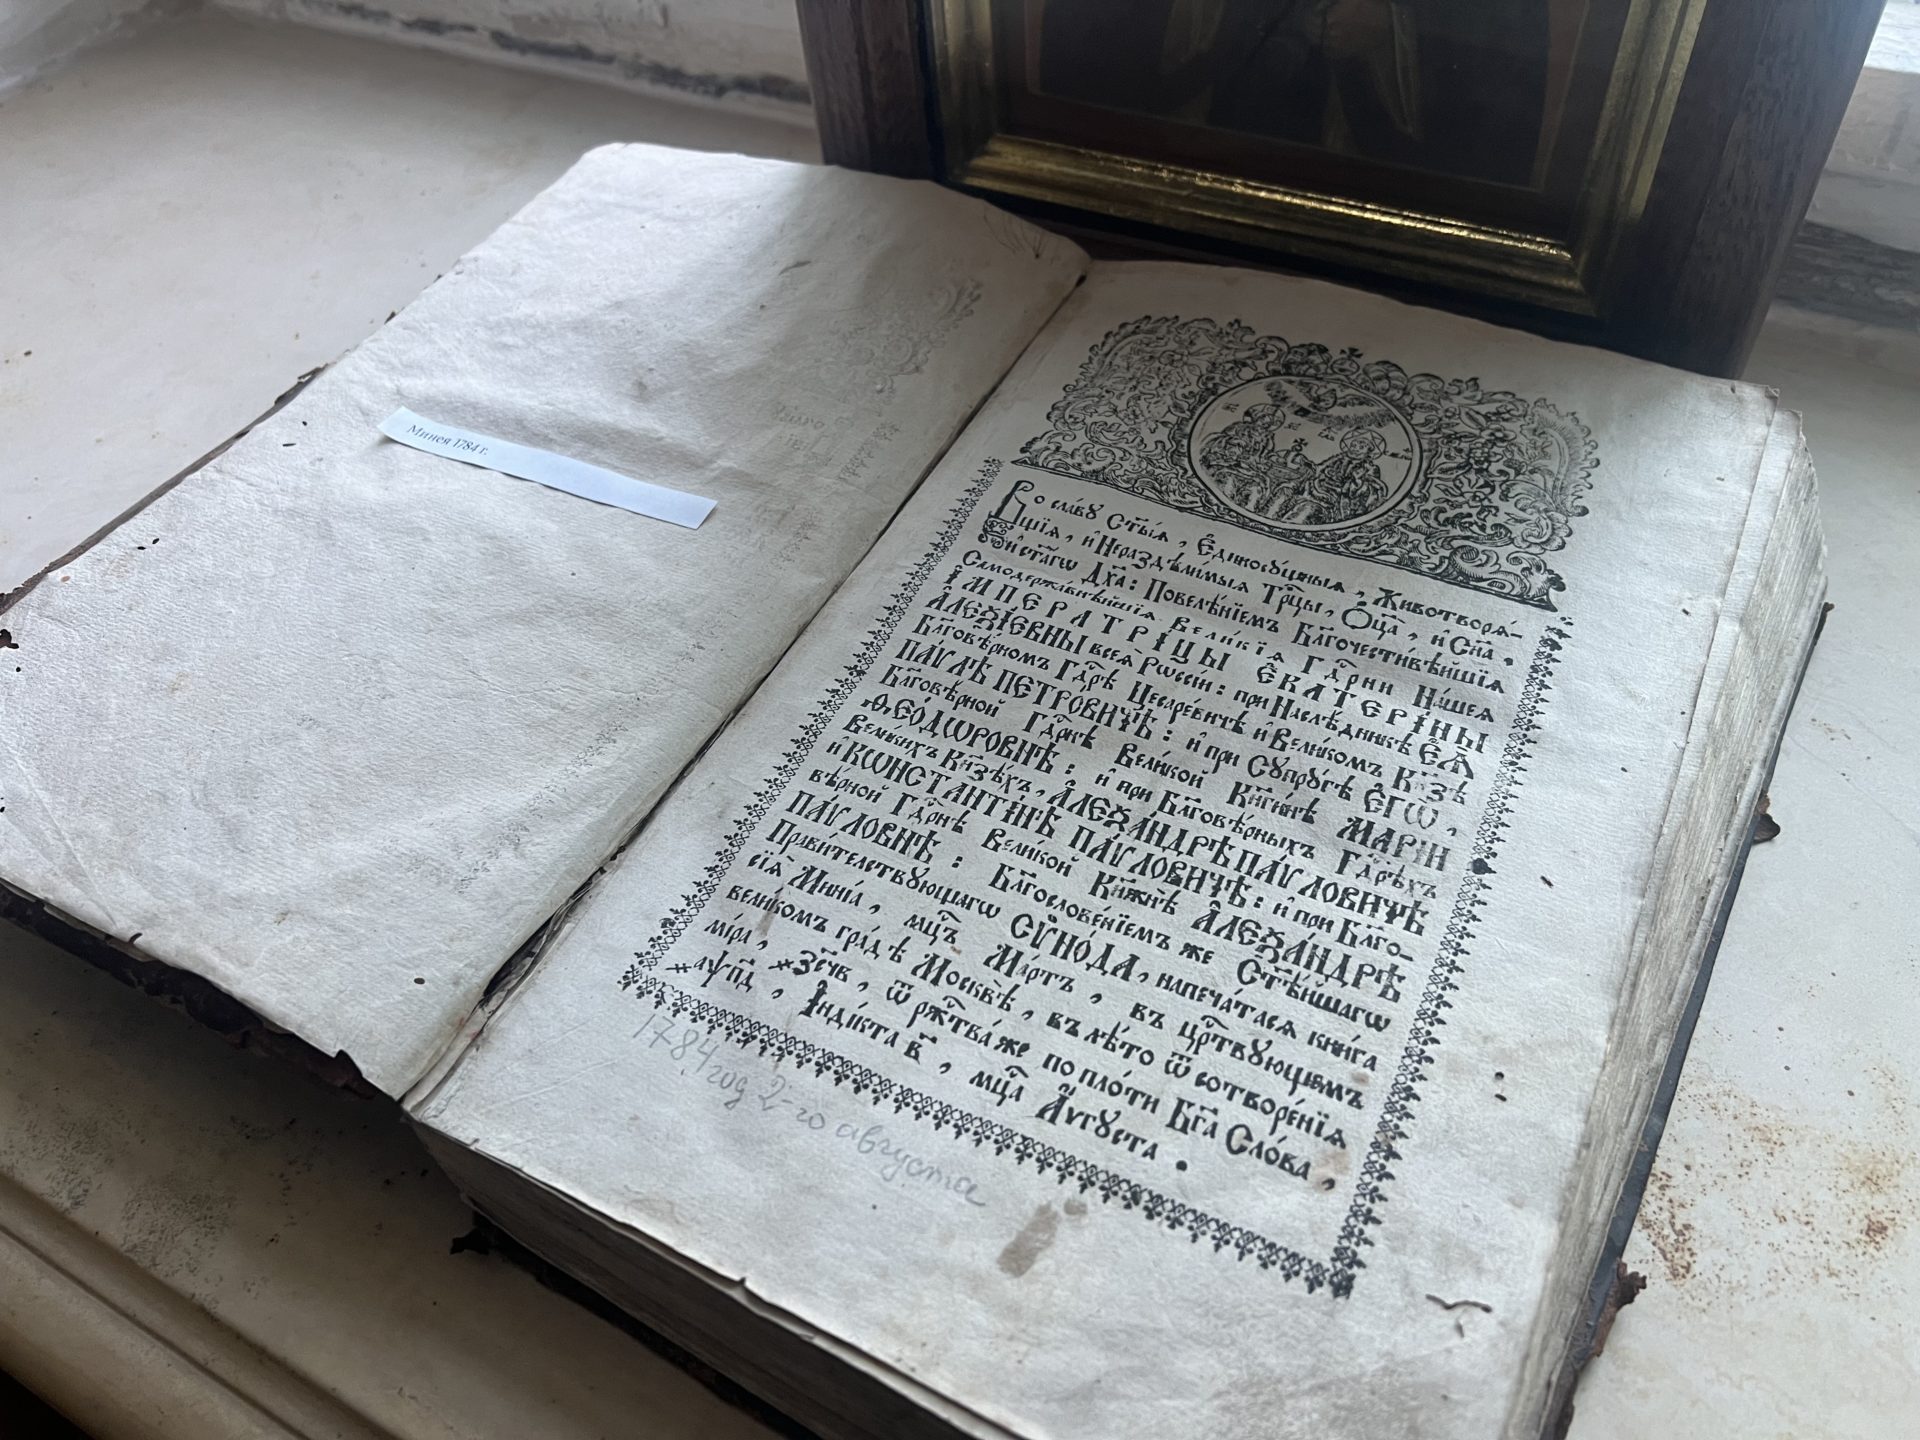 Минея 1784 г.
Во славу Ст҃ы́ѧ, Є҆диносꙋ́щныѧ, Животворѧ́-
щїѧ, и҆ Нераздѣли́мыѧ Трⷪ҇цы, Ѻ҆ц҃а̀, и҆ Сн҃а,
и҆ ст҃а́гѡ Дх҃а: Повелѣ́нїемъ Бл҃гочести́вѣйшїѧ
Самодержа́внѣйшїѧ Вели́кїѧ Гдⷭ҇рни На́шеѧ
І҆МПЕРА́ТРІЦЫ Є҆КАТЕРІ́НЫ
А҆ЛЕѮІ́ЕВНЫ всеѧ̀ Рѡссі́и: при Наслѣ́дникѣ Є҆Ѧ̀
Бл҃говѣ́рномъ Гдⷭ҇рѣ Цесаре́вичѣ и҆ Вели́комъ Кн҃зѣ
ПА́ѴЛѢ ПЕТРО́ВИЧѢ: и҆ при Сꙋпрꙋ́гѣ Є҆ГѠ̀,
Бл҃говѣ́рной Гдⷭ҇рнѣ Вели́кой Кн҃ги́нѣ МАРІ́И
Ѳ҆ЕО́ДѠРОВНѢ: и҆ при Бл҃говѣ́рныхъ Гдⷭ҇рѣхъ
Вели́кихъ Кн҃зѣ́хъ, А҆ЛЕѮА́НДРѢ ПА́ѴЛОВИЧѢ
и҆ КѠНСТАНТІ́НѢ ПА́ѴЛОВИЧѢ: и҆ при Бл҃го-
вѣ́рной Гдⷭ҇рнѣ Вели́кой Кн҃жнѣ̀ А҆ЛЕѮА́НДРѢ
ПА́ѴЛОВНѢ: Бл҃гослове́нїемъ же Ст҃ѣ́йшагѡ
Прави́телствꙋющагѡ СѴНО́ДА, напеча́тасѧ кни́га
сїѧ̀ Мині́а, мцⷭ҇ъ Ма́ртъ, въ црⷭ҇твꙋющемъ
вели́комъ гра́дѣ Москвѣ̀, въ лѣ́то ѿ сотворе́нїѧ
мі́ра, ҂зс҃чв, ѿ ржⷭ҇тва́ же по пло́ти Бг҃а Сло́ва,
҂аѱп҃д, І҆ндікта в҃, мцⷭ҇а А҆́ѵгꙋста.
1784 год 2-го августа